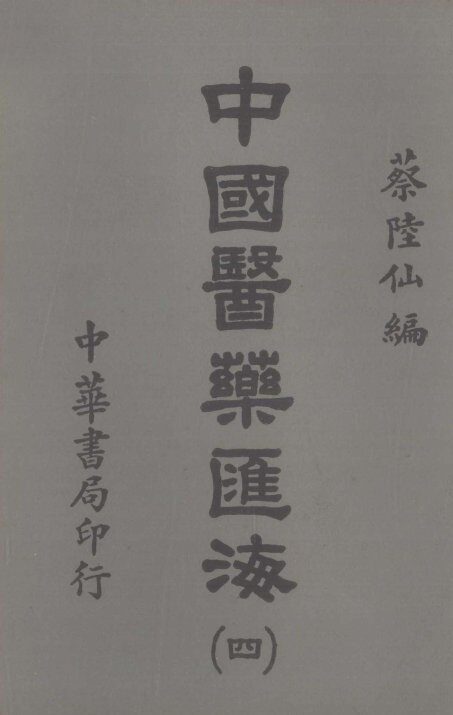 蔡陸仙編
中國醫藥匯海
(四)
中華書局印行